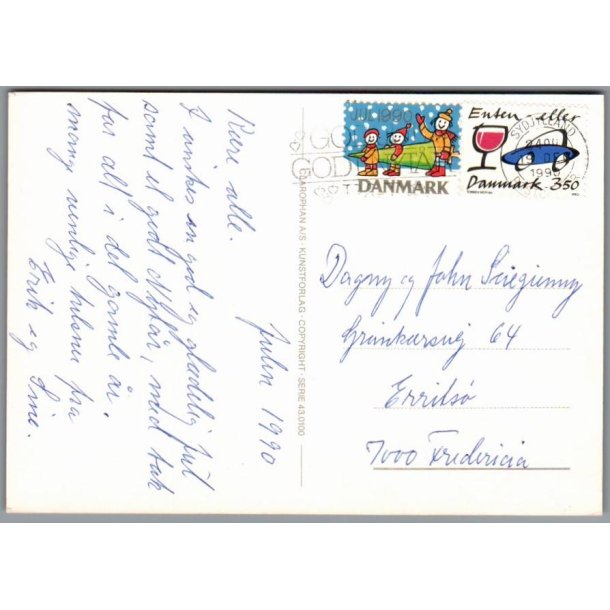 Julen 1990
Kære alle.
I ønskes en god og glædelig Jul
samt et godt Nytår, med tak
for alt i det gamle år.
mange venlige hilsner fra
Erik og
CLAROPHAN A/S - KUNSTFORLAG - COPYRIGHT - SERIE 43.0100
JUL 1990
DANMARK
Enten - eller
Danmark 350
SYDJYLLAND
1990
GOD
Dagny og John
64
Erritsø
7000 Fredericia